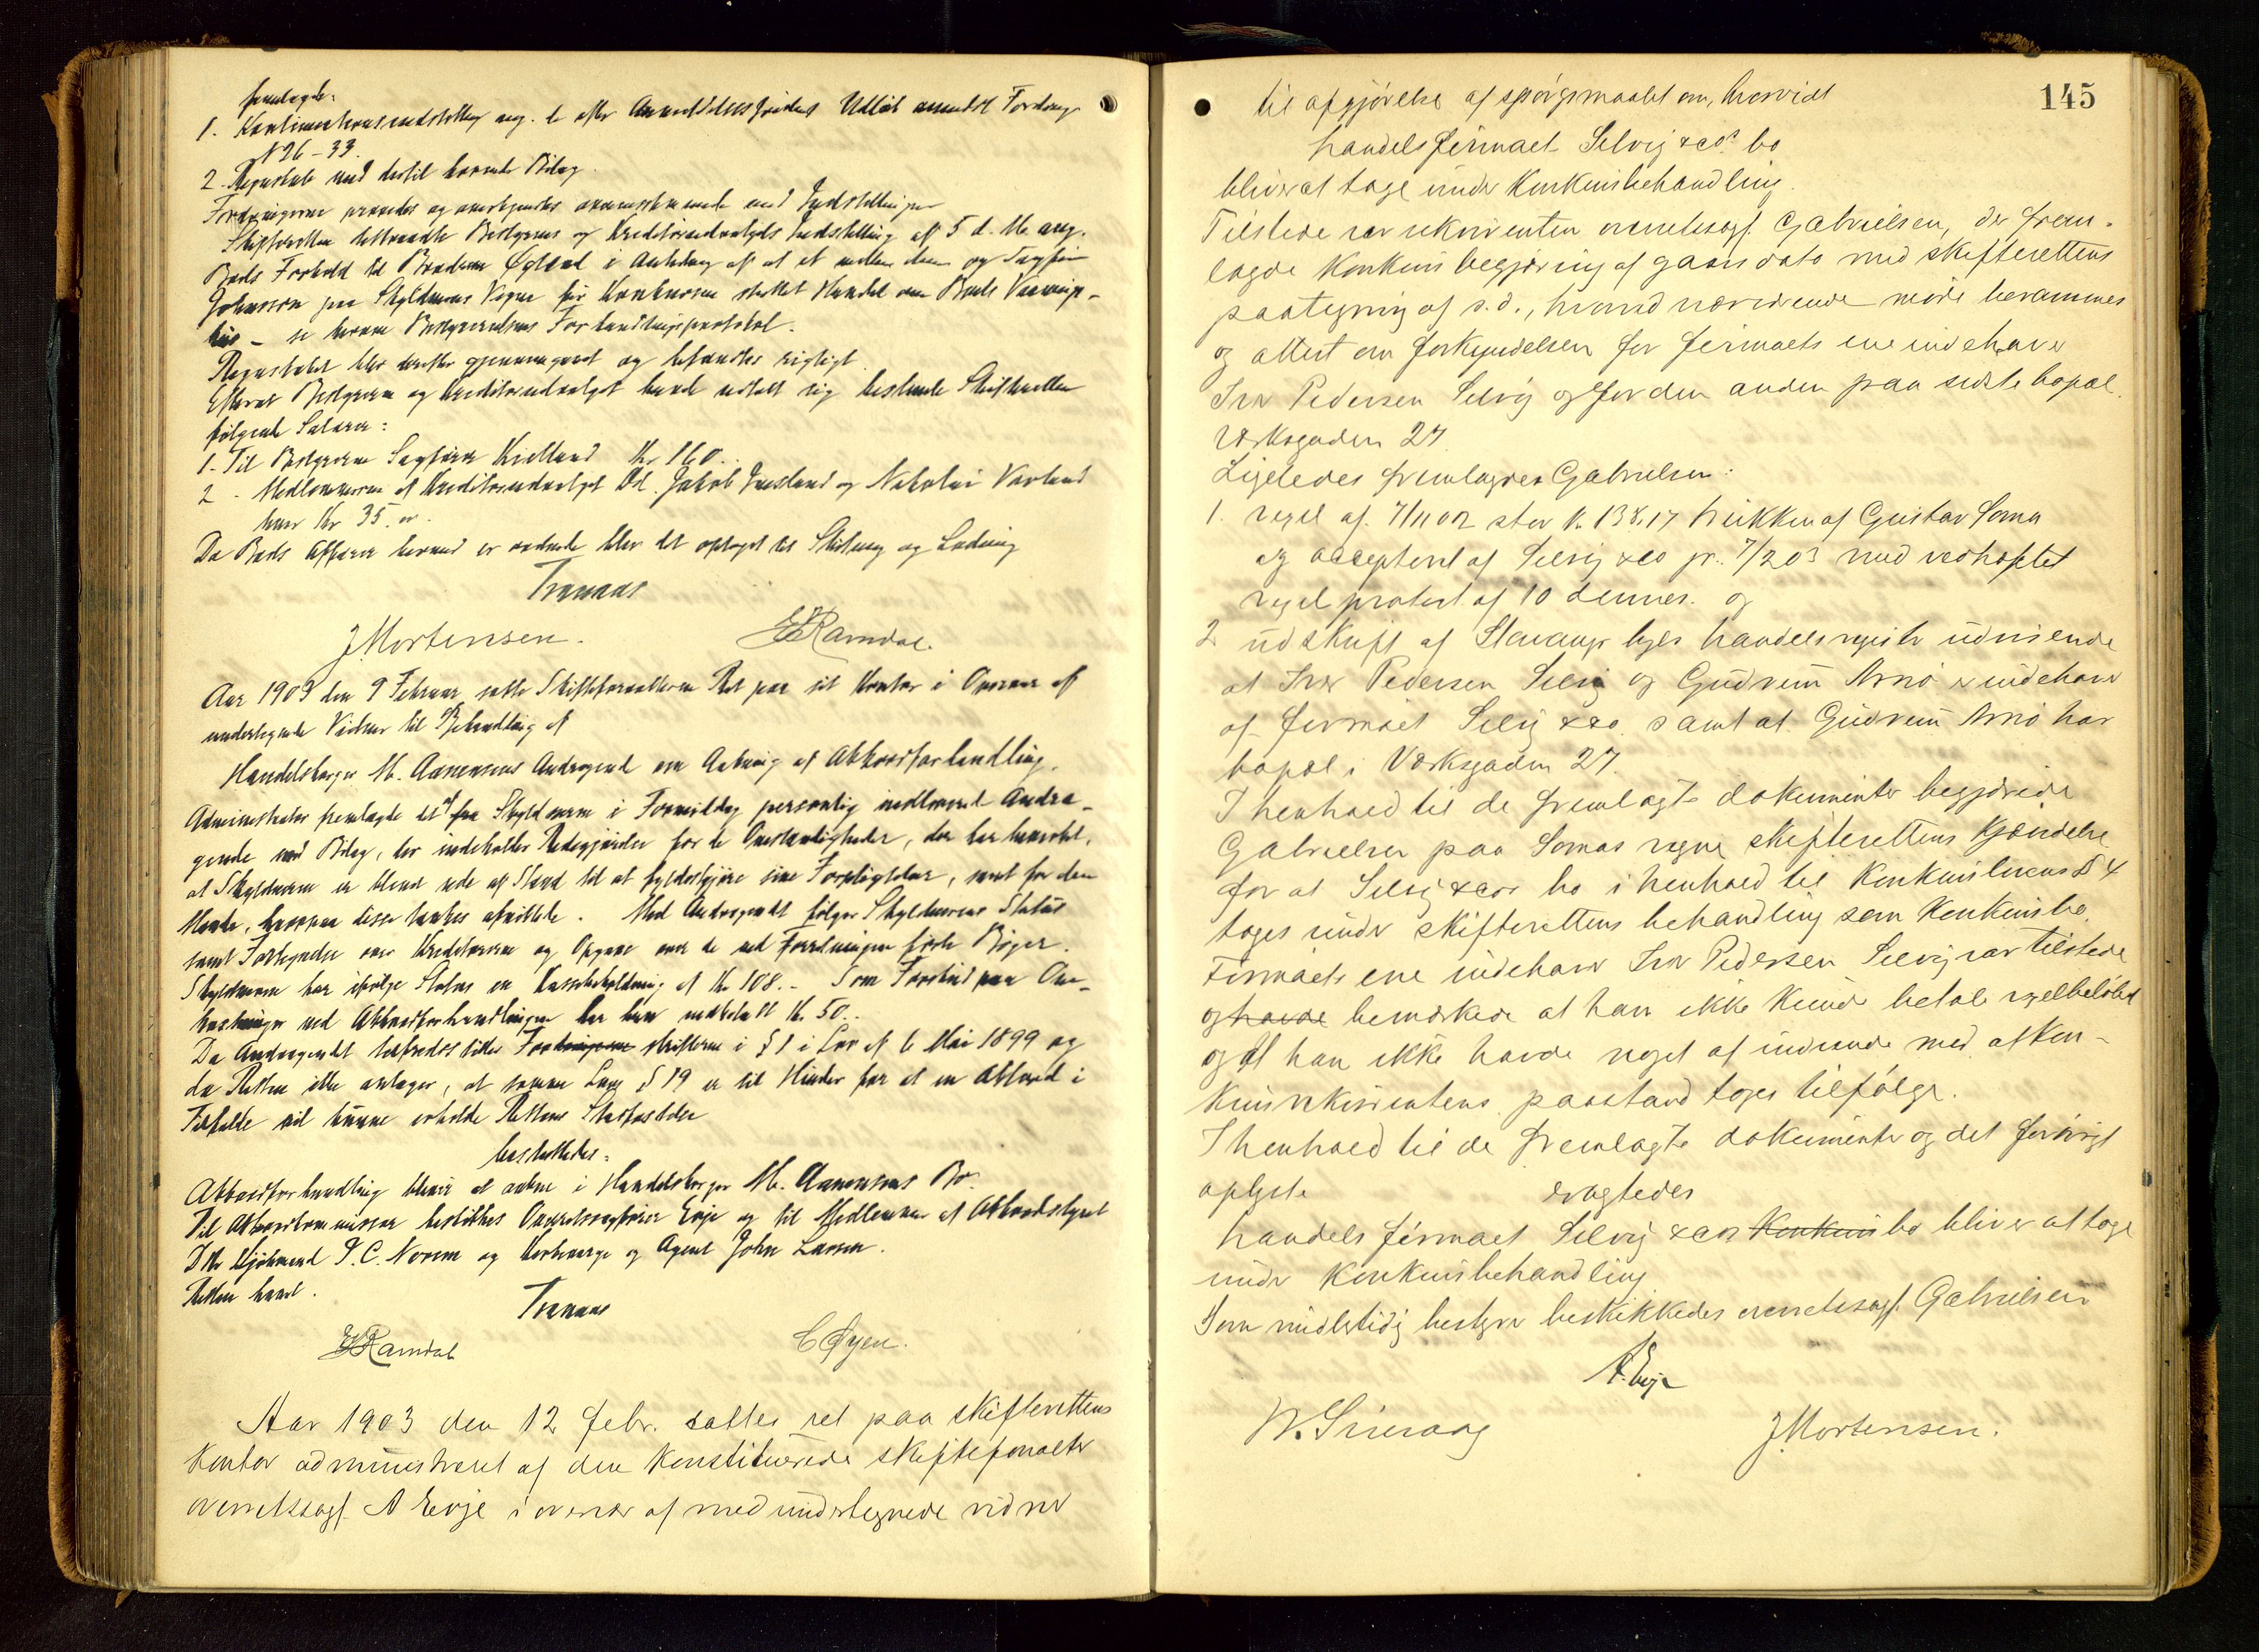 fremlagde:
1. Kontinuationsindstilling ang. de efter Anmeldelsesfristens Udløb anmeldte Fordringer
N 26 - 33.
2. Regnskab med dertil hørende Bilag.
Fordringerne prøvedes og anerkjendtes overensstemmende med Indstillingen
Skifteretten tiltraadte Bestyrerens og Kreditorudvalgets Indstilling af 5 d. M. ang.
Boets Forhold til Brødrene Øgland i Anledning af at et mellem dem og Sagfører
Johnsson paa Skyldnerens Vegne før Konkursen sluttet Handel om Boets Vaanings-
hus - se herom Bestyrerens Forhandlingsprotokol.
Regnskabet blev derefter gjennemgaaet og befandtes rigtigt.
Efterat Bestyreren og Kreditorudvalget havde udtalt sig bestemte Skifteretten
følgende Salærer:
1. Til Bestyreren Sagfører Kielland Kr. 160..
2. Medlemmerne af Kreditorudvalget Dd. Jakob og Nikolai Varland
hver Kr 35. er.
Da Boets Affærer hermed er ordnede blev det optaget til Slutning og Lodning
Tranaas
J Mortensen. E Ramdal.
Aar 1903 den 9 Februar satte Skifteforvalteren Ret paa sit Kontor i Overvær af
undertegnede Vidner til Behandling af
Handelsborger M. Aanensens Andragende om Aabning af Akkordforhandling.
Administrator fremlagde det af Skyldneren i Formiddag personlig indleverede Andra-
gende med Bilag, der indeholder Redegjørelse for de Omstændigheder, der har bevirket,
at Skyldneren er bleven ude af Stand til at fyldestgjøre sine Forpligtelser, samt for den
Maade, hvorpaa disse tænkes afviklede. Med Andragendet følger Skyldnerens Status
samt Fortegnelse over Kreditorerne og Opgave over de ved Forretningen førte Bøger.
Skyldneren har ifølge Status en Kassebeholdning af Kr 108.- Som Forskud paa Om-
kostninger ved Akkordforhandlingen har han indbetalt Kr. 50..
Da Andragendet tilfredsstiller Fordringerne skrifterne i § 1 i Lov af 6 Mai 1899 og
da Retten ikke antager, at samme Lovs § 19 er til Hinder for at en Akkord i
Tilfælde vil kunne erholde Rettens Stadfæstelse
besluttedes:
Akkordforhandling bliver at aabne i Handelsborger M. Aanensens Bo.
Til Akkordkommissær beskikkes Overretssagfører Evje og til Medlemmer af Akkordstyret
D'Hr Kjøbmand P. C. Norem og og Agent John Larsen.
Retten hævet.
Tranaas
E Ramdal C Øyen.
Aar 1903 den 12 febr. sattes ret paa skifterettens
kontor administreret af den konstituerede skifteforvalter
overretssagf. A Evje i overvær af medundertegnede vidner
145
til afgjørelse af spørgsmaalet om, hvorvidt
handelsfirmaet Selvig & co's bo
bliver at tage under konkursbehandling.
Tilstede var rekvirenten overretssagf. Gabrielsen, der frem-
lagde konkursbegjæring af gaars dato med skifterettens
paategning af s.d., hvorved nærværende møde berammes
og attest om forkyndelsen for firmaets ene indehaver
Iver Pedersen Selvig og for den anden paa sidste bopæl
Værksgaden 27.
Ligeledes fremlagdes Gabrielsen:
1. vexel af 7/11 02 stor k. 138.17 trukken af Gustav Soma
og accepteret af Selvig & co pr. 7/2 03 med vedhæftet
vexelprotest af 10 dennes. og
2 udskrift af Stavanger byes handelsregister udvisende
at Iver Pedersen Selvig og Gudrun Arnø er indehaver
af firmaet Selvig & co. samt at Gudrun Arnø har
bopæl i Værksgaden 27.
I henhold til de fremlagte dokumenter begjærede
Gabrielsen paa Somas vegne skifterettens kjendelse
for at Selvig & co's bo i henhold til konkurslovens § 4
toges under skifterettens behandling som konkursbo.
Firmaets ene indehaver Iver Pedersen Selvig var tilstede
og havde bemærkede at han ikke kunde betale vexelbeløbet
og at han ikke havde noget at indvende med at kon-
kursrekvirentens paastand toges tilfølge.
I henhold til de fremlagte dokumenter og det forøvrigt
oplyste vragtedes
handelsfirmaet Selvig & co's konkurs bo bliver at tage
under konkursbehandling
Som midlertidig bestyrer beskikkedes overretssagf. Gabrielsen
A. Evje
J Mortensen.